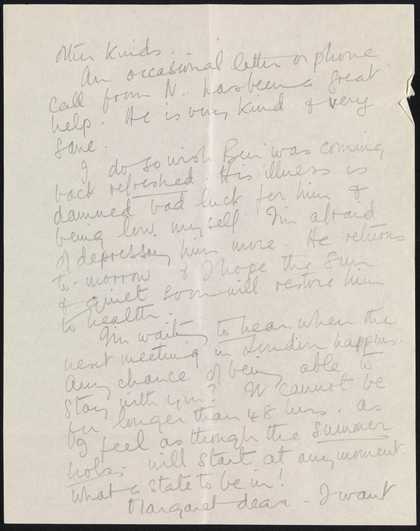 other kinds . .
An occasional letter or phone
call from N. has been a great
help. He is very kind & very
sane.
I do so wish Ben was coming
back refreshed. His illness is
damned bad luck for him &
being low myself I'm afraid
of depressing him more. He returns
to-morrow & I hope the sun
& quiet soon will restore him
to health.
I'm waiting to hear when the
next meeting in London happens.
Any chance of being able to
stay with you? It cannot be
for longer than 48 hrs. as
I feel as though the summer
hols. will start at any moment.
What a state to be in!
Margaret dear - I want